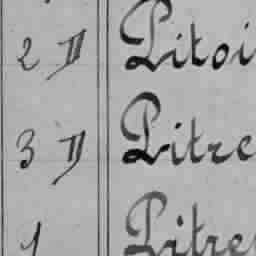 2 D Pitoi
3 D Pitre
1 Pitre